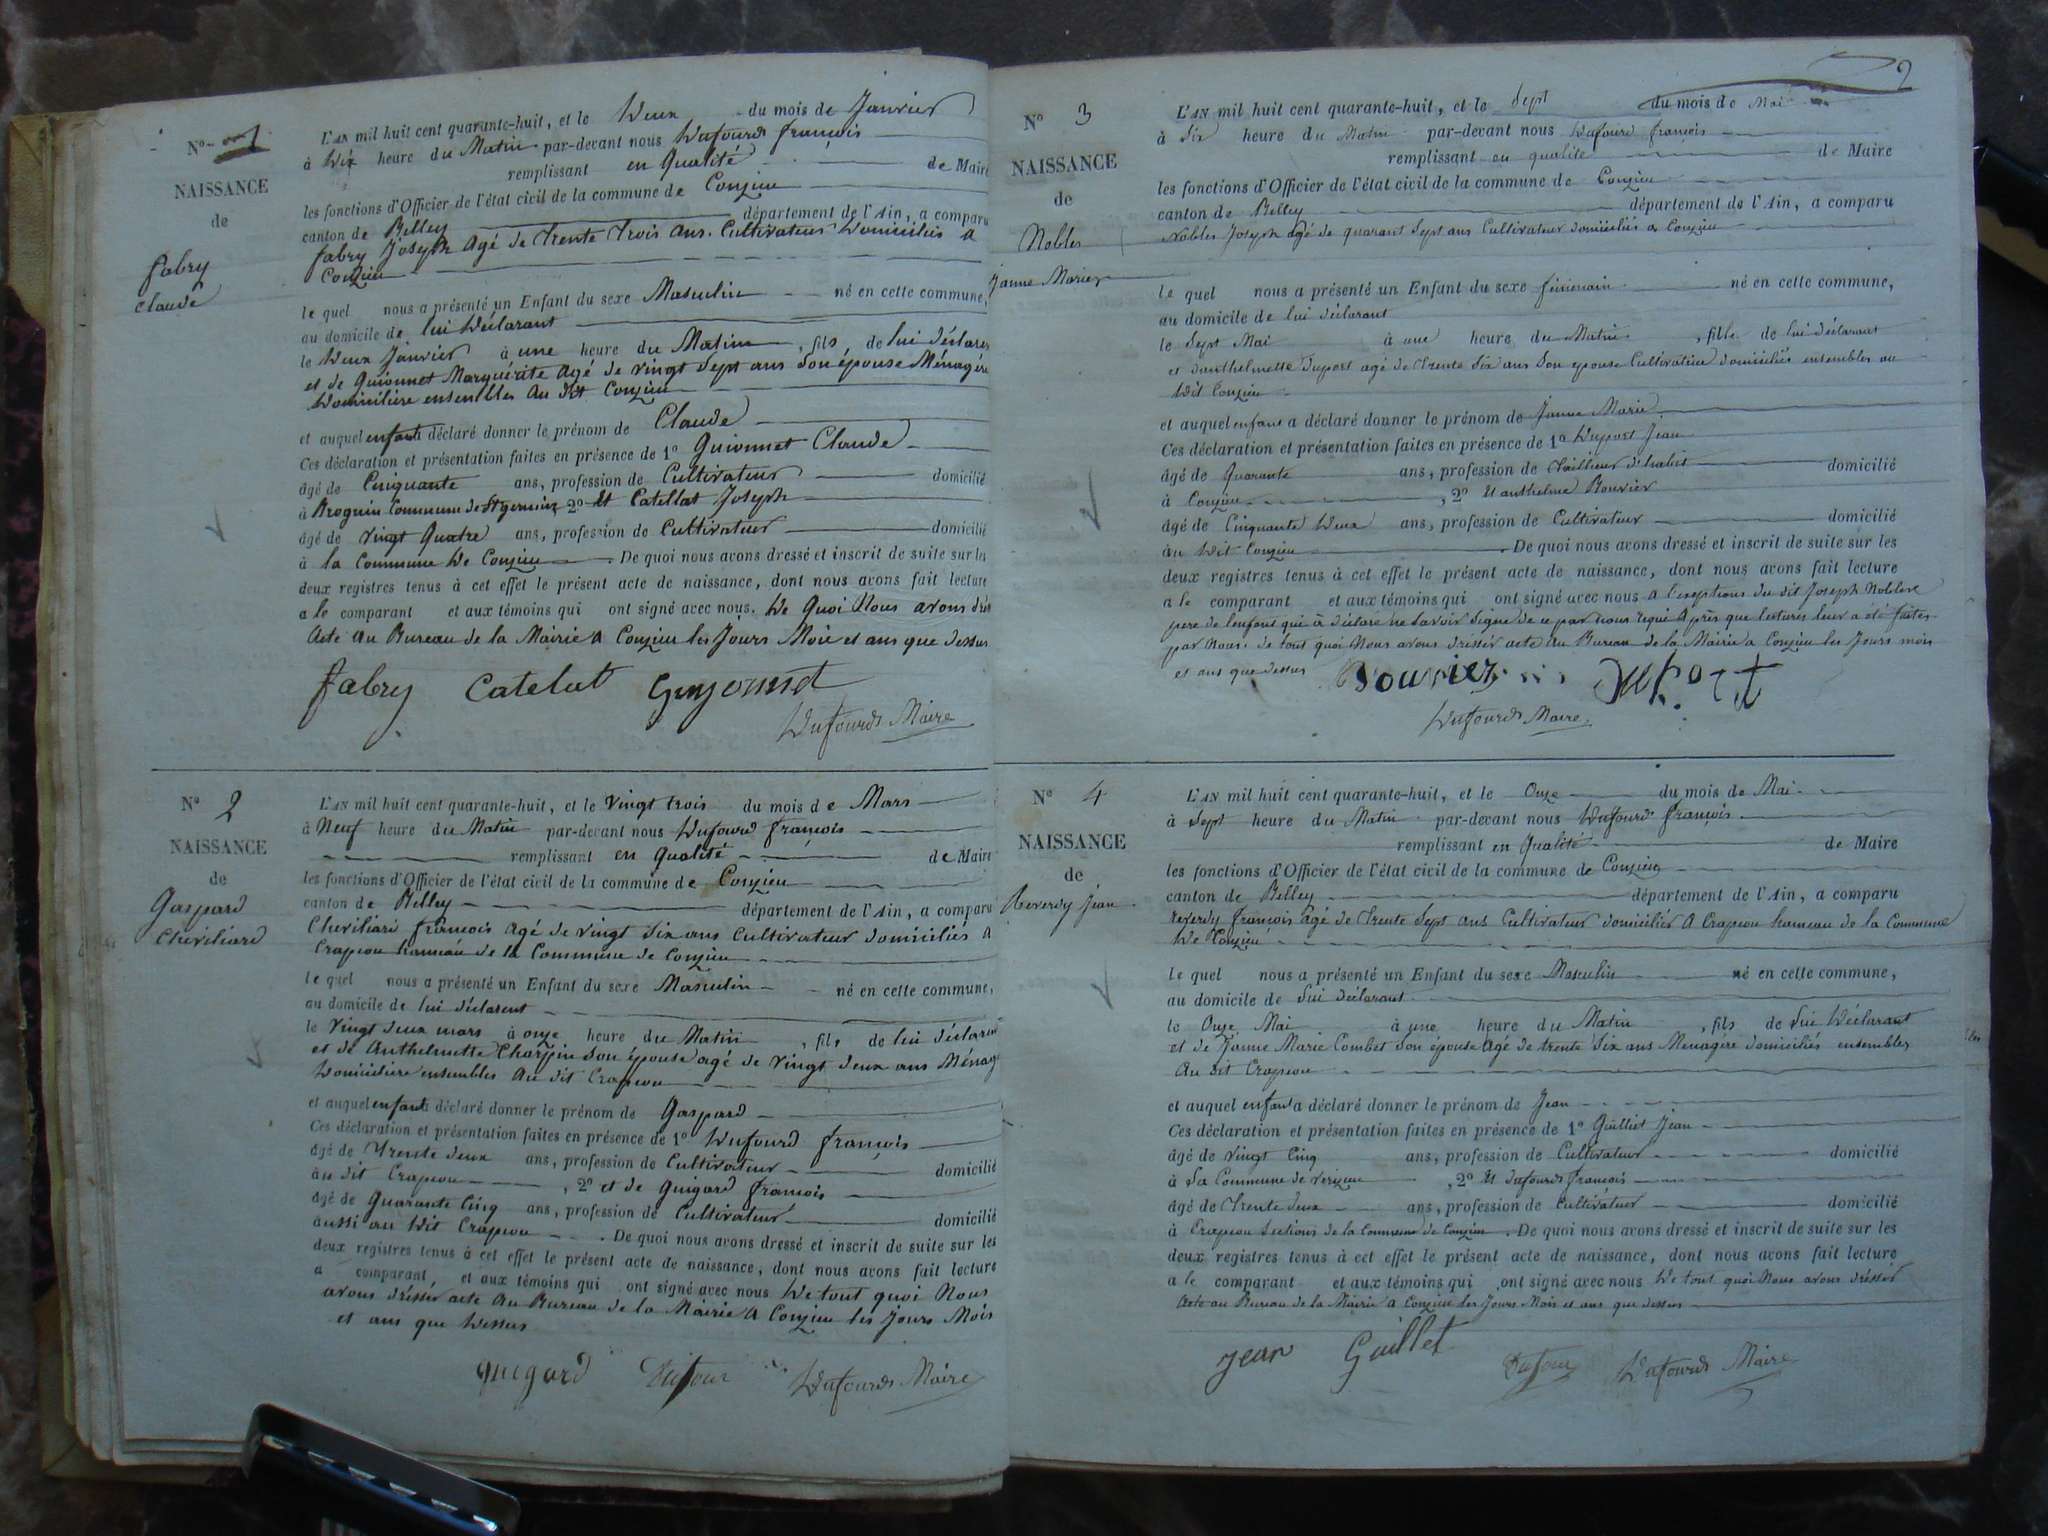 N° 1
NAISSANCE
de
fabry
Claude
L'AN mil huit cent quarante-huit, et le Deux du mois de Janvier
à Dix heure du Matin par-devant nous Dufourd françois
remplissant en Qualité de Maire
les fonctions d'Officier de l'état civil de la commune de Conzieu
canton de Belley département de l'Ain, a comparu
fabry Joseph agé de trente trois ans Cultivateur Domiciliés a
Conzieu
le quel nous a présenté un Enfant du sexe Masculin né en cette commune,
au domicile de lui Déclarant
le Deux Janvier à une heure du Matin, fils, de lui déclaran
et de Guionnet Marguérite agé de vingt Sept ans Son épouse Ménagére
Domiciliere ensembles Au dit Conzieu
et auquel enfant a déclaré donner le prénom de Claude
Ces déclaration et présentation faites en présence de 1° Guionnet Claude
âgé de Cinquante ans, profession de Cultivateur domicilié
à Brognin Commune de St germain 2° Et Catellat Joseph
âgé de vingt Quatre ans, profession de Cultivateur domicilié
à la Commune De Conzieu. De quoi nous avons dressé et inscrit de suite sur les
deux registres tenus à cet effet le présent acte de naissance, dont nous avons fait lecture
a le comparant et aux témoins qui ont signé avec nous. De Quoi Nous avons
Acte Au Bureau de la Mairie A Conzieu les Jours Mois et ans que dessus
fabry Catelat Guyonnet
Dufourd Maire
N° 2
NAISSANCE
de
Gaspard
Cheviliard
L'AN mil huit cent quarante-huit, et le vingt trois du mois de Mars
à Neuf heure du Matin par-devant nous Dufourd françois
remplissant en Qualité de Maire
les fonctions d'Officier de l'état civil de la commune de Conzieu
canton de Belley département de l'Ain, a comparu
Cheviliard francois agé de vingt Six ans Cultivateur domiciliés A
Crapeou hameau de la Commune de Conzieu
le quel nous a présenté un Enfant du sexe Masculin né en cette commune,
au domicile de lui déclarent
le vingt deux mars à onze heure du Matin, fils de lui déclaran
et de Anthelmette Charpin Son épouse agé de vingt deux ans Ménag
Domiciliere ensembles Au dit Crapeou
et auquel enfant a déclaré donner le prénom de Gaspard
Ces déclaration et présentation faites en présence de 1° Dufourd françois
âgé de trente deux ans, profession de Cultivateur domicilié
au dit Crapeou, 2° et de Guigard francois
âgé de Quarante Cinq ans, profession de Cultivateur domicilié
aussi au Dit Crapeou. De quoi nous avons dressé et inscrit de suite sur les
deux registres tenus à cet effet le présent acte de naissance, dont nous avons fait lecture
a comparant, et aux témoins qui ont signé avec nous De tout quoi Nous
avons dréssér acte Au Bureau de la Mairie A Conzieu les Jours Mois
et ans que Dessus
guigard Dufour Dufourds Maire
2
N° 3
NAISSANCE
de
Nobles
Janne Marie
L'AN mil huit cent quarante-huit, et le Sept du mois de Mai
à Six heure du Matin par-devant nous Dufourd françois
remplissant en qualité de Maire
les fonctions d'Officier de l'état civil de la commune de Conzieu
canton de Belley département de l'Ain, a comparu
Nobles Joseph agé de quarant Sept ans Cultivateur domiciliés a Conzieu
le quel nous a présenté un Enfant du sexe féminin né en cette commune,
au domicile de lui déclarant
le Sept Mai à une heure du Matin, fille de lui déclarant
et danthelmette Duport agé de trente Six ans Son epouse Cultivatrice domiciliés ensembles au
Dit Conzieu
et auquel enfant a déclaré donner le prénom de Janne Marie
Ces déclaration et présentation faites en présence de 1° Duport Jean
âgé de Quarante ans, profession de tailleur d'habit domicilié
à Conzieu, 2° Et anthelme Bouvier
âgé de Cinquante Deux ans, profession de Cultivateur domicilié
au Dit Conzieu. De quoi nous avons dressé et inscrit de suite sur les
deux registres tenus à cet effet le présent acte de naissance, dont nous avons fait lecture
a le comparant et aux témoins qui ont signé avec nous a l'eseptions du dit Joseph Noblese
pere de lenfant qui à déclaré ne Savoir Signé de ce par nous requi Après que lectures leur a été faites
par Nous. de tout quoi Nous avons dréssér acte Au Bureau de la Mairie a Conzieu les Jours mois
et ans que dessus Bouvier Duport
Dufourds Maire
N° 4
NAISSANCE
de
Reverdy Jean
L'AN mil huit cent quarante-huit, et le Onze du mois de Mai
à Sept heure du Matin par-devant nous Dufourd françois
remplissant en Qualité de Maire
les fonctions d'Officier de l'état civil de la commune de Conzieu
canton de Belley département de l'Ain, a comparu
Reverdy françois agé de trente Sept ans Cultivateur domiciliér A Crapeou hameau de la Commune
De Conzieu
le quel nous a présenté un Enfant du sexe Masculin né en cette commune,
au domicile de Lui déclarant
le Onze Mai à une heure du Matin, fils de Lui Déclarant
et de Janne Marie Combet Son épouse Agé de trente Six ans Menagere domiciliés ensembles
Au dit Crapeou
et auquel enfant a déclaré donner le prénom de Jean
Ces déclaration et présentation faites en présence de 1° Guilliet Jean
âgé de vingt Cinq ans, profession de Cultivateur domicilié
à La Commune de, 2° Et Dufourds francois
âgé de trente deux ans, profession de Cultivateur domicilié
à Crapeou Sections de la Commune de Conzieu. De quoi nous avons dressé et inscrit de suite sur les
deux registres tenus à cet effet le présent acte de naissance, dont nous avons fait lecture
a le comparant et aux témoins qui ont signé avec nous De tout quoi Nous avons dréssér
Acte au Bureau de la Mairie A Conzieu les Jours Mois et ans que dessus
jean Guillet Dufour Dufourds Maire